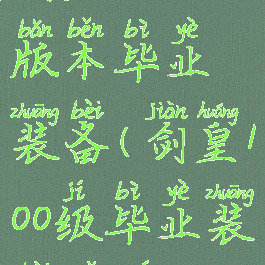 bǎn běn bì yè
版本毕业
zhuāng bèi jiàn huáng
装备(剑皇1
jí bì yè zhuāng
00级毕业装